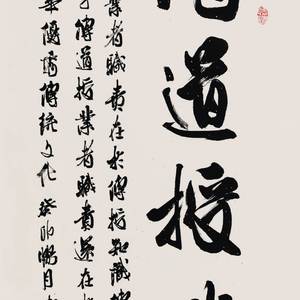 道授
業者職責在於傳授知識
傳道授業者職責還在
優秀傳統文化 癸卯臘月